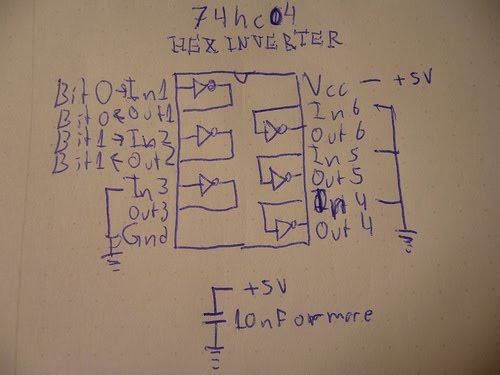 74hc04
HEX INVERTER
Bit 0 → In1
Bit 0 ← Out1
Bit 1 → In2
Bit 1 ← Out2
In3
Out3
Gnd
Vcc — +5V
In 6
Out 6
In 5
Out 5
In 4
Out 4
+5V
10nF or more